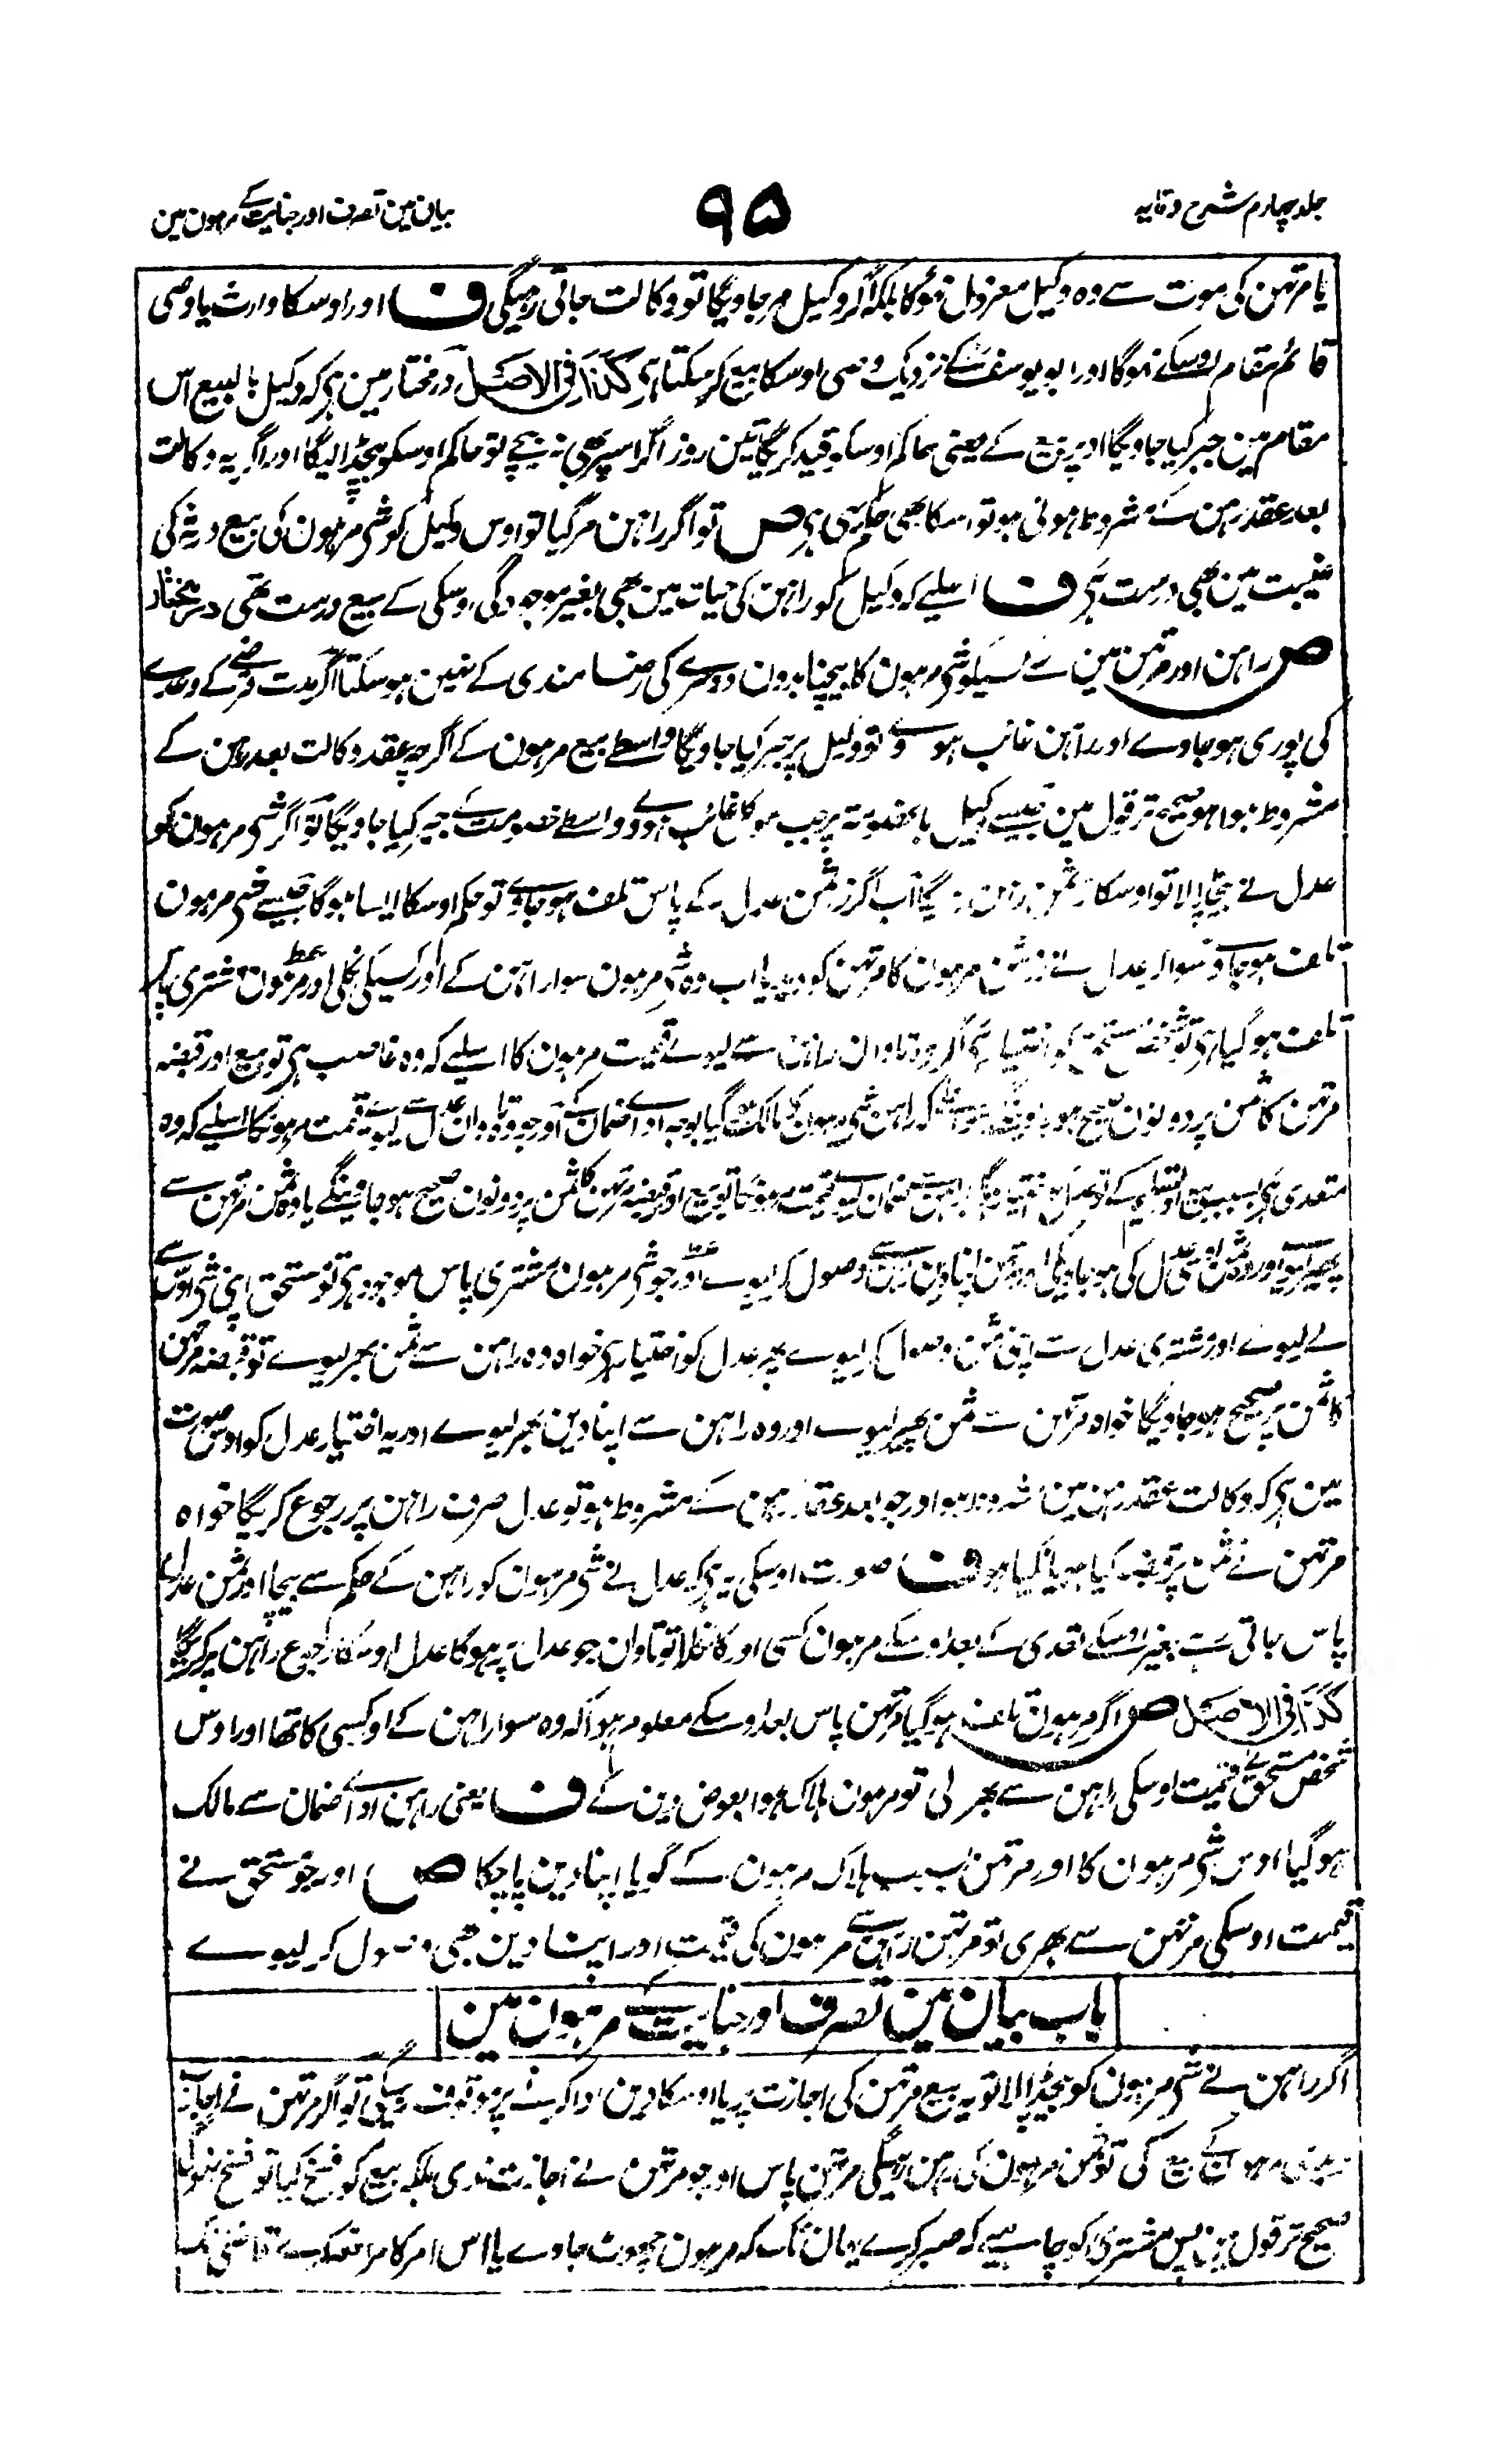 جلد چہارم شرح وقایہ
۹۵
بیان مین تصرف اور جنایت کے مرہون مین
یا مرتہن کی موت سے وہ وکیل معزول نہوگا بلکہ اگر وکیل مرجاویگا تو وکالت جاتی رہیگی ف اور اوسکا وارث یا وصی
قائم مقام اوسکے نہوگا اور ابو یوسف کے نزدیک وصی اوسکا بیع کرسکتا ہی کذا فی الاصل درمختار مین ہی کہ وکیل بالبیع اس
مقام مین جبر کیا جاویگا اوپر بیع کے یعنی حاکم اوسکو قید کریگا تین روز اگر اسپر بھی نہ بیچے تو حاکم اوسکو بیچڈالیگا اور اگر یہ وکالت
بعد عقد رہن کے مشروط ہوئی ہو تو اسکا بھی حکم یہی ہی ص تو اگر راہن مرگیا تو اوس وکیل کو شی مرہون کی بیع ورثہ کی
غیبت مین بھی درست ہی ف اسلیے کہ وکیل کو راہن کی حیات مین بھی بغیر موجودگی اوسکی کے بیع درست تھی درمختار
ص راہن اور مرتہن مین سے کسیکو شی مرہون کا بیچنا بدون دوسرے کی رضامندی کے نہین ہوسکتا اگر مدت قرضے کے وعدے
کی پوری ہوجاوے اور راہن غائب ہووے تو وکیل پر جبر کیا جاویگا واسطے بیع مرہون کے اگرچہ عقد وکالت بعد رہن کے
مشروط ہوا ہو صحیح تر قول مین جیسے وکیل بالخصومتہ پر جب موکل غائب ہووے واسطے خصومت کے جبر کیا جاویگا تو اگر شی مرہون کو
عدل نے بیچ ڈالا تو اوسکا زرثمن رہن رہیگا اب اگر زرثمن عدل کے پاس تلف ہوجاوے تو حکم اوسکا ایسا ہوگا جیسے شی مرہون
تلف ہوجاوے سو اگر عدل نے زرثمن مرہون کا مرتہن کو دیدیا اب وہ شی مرہون سوا راہن کے اور کسیکی نکلی اور مرہون مشتری پاس
تلف ہوگیا ہی تو شخص مستحق کو اختیار ہی اگر وہ تاوان راہن سے لیوے قیمت مرہون کا اسلیے کہ وہ غاصب ہی تو بیع اور قبضہ
مرتہن کا ثمن پر دونون صحیح ہو اسلیے کہ راہن شی مرہون کا مالک ہوگیا بوجہ ادائے ضمان کے اور جو وہ تاوان عدل سے لیوے قیمت مرہون کا اسلیے کہ وہ
متعدی ہی بسبب بیع اور تسلیم کے تو عدل کو اختیار ہوگا راہن سے ضمان لیوے قیمت مرہون کا تو بیع اور قبضہ مرتہن کا ثمن پر دونون صحیح ہوجاوینگے یا وہ ثمن مرتہن سے
پھیر لیوے اور وہ ثمن عدل کی ہوجاویگی اور مرتہن اپنا دین راہن سے وصول کرلیوے اور جو شی مرہون مشتری پاس موجود ہی تو مستحق اپنی شی اوس سے
لے لیوے اور مشتری عدل سے اپنی ثمن وصول کرلیوے پھر عدل کو اختیار ہی خواہ وہ راہن سے ثمن بھر لیوے تو قبضہ مرتہن
کا ثمن پر صحیح ہوجاویگا خواہ مرتہن سے ثمن پھیر لیوے اور وہ راہن سے اپنا دین بھر لیوے اور یہ اختیار عدل کو اوس صورت
مین ہی کہ وکالت عقد رہن مین مشروط ہو اور جو بعد عقد رہن کے مشروط ہو تو عدل صرف راہن پر رجوع کریگا خواہ
مرتہن نے ثمن پر قبضہ کیا ہو یا نکیا ہو ف صورت اوسکی یہ ہی کہ عدل نے شی مرہون کو راہن کے حکم سے بیچا اور ثمن عدل کے
پاس جاتی رہی بغیر اوسکے تعدی کے بعد اوسکے مرہون کسی اور کا نکلا تو تاوان جو عدل پر ہوگا عدل اوسکا رجوع راہن پر کریگا
کذا فی الاصل ص اگر مرہون تلف ہوگیا مرتہن پاس بعد اوسکے معلوم ہوا کہ وہ سوا راہن کے اور کسی کا تھا اور اوس
شخص مستحق نے قیمت اوسکی راہن سے بھر لی تو مرہون ہلاک ہوا بعوض دین کے ف یعنی راہن ادائے ضمان سے مالک
ہوگیا اوس شی مرہون کا اور مرتہن بسبب ہلاک مرہون کے گویا اپنا دین پاچکا ص اور جو مستحق نے
قیمت اوسکی مرتہن سے بھری تو مرتہن راہن سے مرہون کی قیمت اور اپنا دین بھی وصول کرلیوے
باب بیان مین تصرف اور جنایت کے مرہون مین
اگر راہن نے شی مرہون کو بیچڈالا تو یہ بیع مرتہن کی اجازت پر یا اوسکا دین ادا کرنے پر موقوف رہیگی تو اگر مرتہن نے اجازت
بیع کی تو ثمن مرہون کی رہن رہیگی مرتہن پاس اور جو مرتہن نے اجازت ندی بلکہ بیع کو فسخ کیا تو فسخ نہوگی
صحیح تر قول مین پس مشتری کو چاہیے کہ صبر کرے یہان تک کہ مرہون چھوٹ جاوے یا اس امر کا مرافعہ کرے قاضی تک